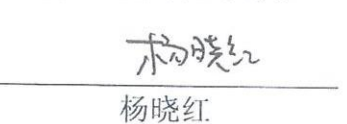 杨晓红
杨晓红